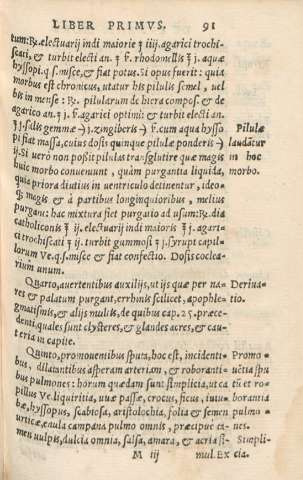 LIBER PRIMVS. 91
tum: ℞. electuarij indi maioris ʒ iiij. agarici trochi-
scati, & turbit electi an. ʒ ß. rhodomellis ℥ j. aquæ
hyssopi. q. s. misce, & fiat potus. Si opus fuerit: quia
morbus est chronicus, utatur his pilulis semel, uel
bis in mense: ℞. pilularum de hiera compos. & de
agarico an. ʒ j. agarici optimi & turbit electi an.
ʒ j. salis gemmæ ℈ j. zingiberis ℈ ß. cum aqua hysso
pi fiat massa, cuius dosis quinque pilulæ ponderis ℈ Pilulæ
ij. Si uerò non possit pilulas transglutire quæ magis laudātur
huic morbo conuenunt, quàm purgantia liquida, in hoc
quia priora diutius in uentriculo detinentur, ideo- morbo.
q; magis & à partibus longinquioribus, melius
purgant: hac mixtura fiet purgatio ad usum: ℞. dia
catholiconis ℥ ij. electuarij indi maioris ℥ j. agari
ci trochiscati ʒ ij. turbit gummosi ʒ j. syrupi capil-
lorum Ve. q. s. misce & fiat confectio. Dosis coclea-
rium unum.
Quarto, auertentibus auxilijs, ut ijs quæ per na- Deriua-
res & palatum purgant, errhinis scilicet, apophle- tio.
gmatismis, & alijs multis, de quibus cap. 25. præce-
denti, quales sunt clysteres, & glandes acres, & cau-
teria in capite.
Quinto, promouentibus sputa, hoc est, incidenti- Promo-
bus, dilatantibus asperam arteriam, & roboranti- uētia spu
bus pulmones: horum quædam sunt simplicia, ut ca ti & ro-
pillus Ve. liquiritia, uuæ passæ, crocus, ficus, iuiu- borantia
bæ, hyssopus, scabiosa, aristolochia, folia & semen pulmo-
urticæ, & aula campana pulmo omnis, præcipuè ci- nes.
men uulpis, dulcia omnia, salsa, amara, & acria si- Simpli-
M iij mul. Ex cia.